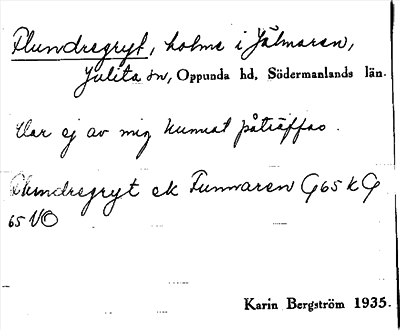 Plundregryt, holme i Jälmaren,
Julita sn, Oppunda hd, Södermanlands län.
Har ej av mig kunnat påträffas.
Plundregryt ek Funnaren G 65 k G
65 VO
Karin Bergström 1935.